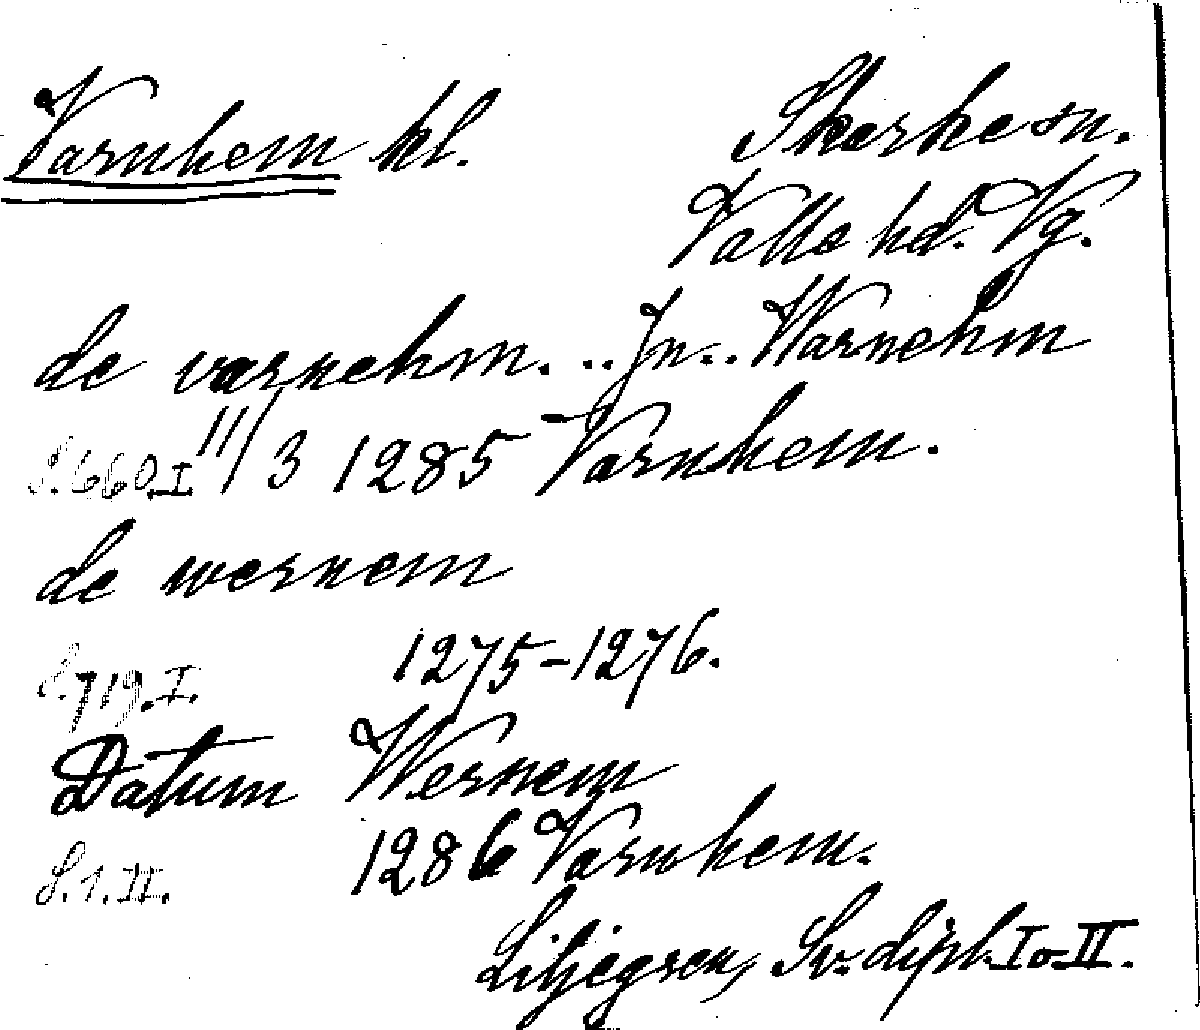 Varnhem kl. Skarke sn.
Valle hd. Vg.
de varnehm. .. Jn.. Warnehm
S. 660. I. 11/3 1285 Varnhem.
de wernem
S. 719. I. 1275-1276.
Datum Wernem
S. 1. II. 1286 Varnhem.
Liljegren, Sv. dipl. I o. II.